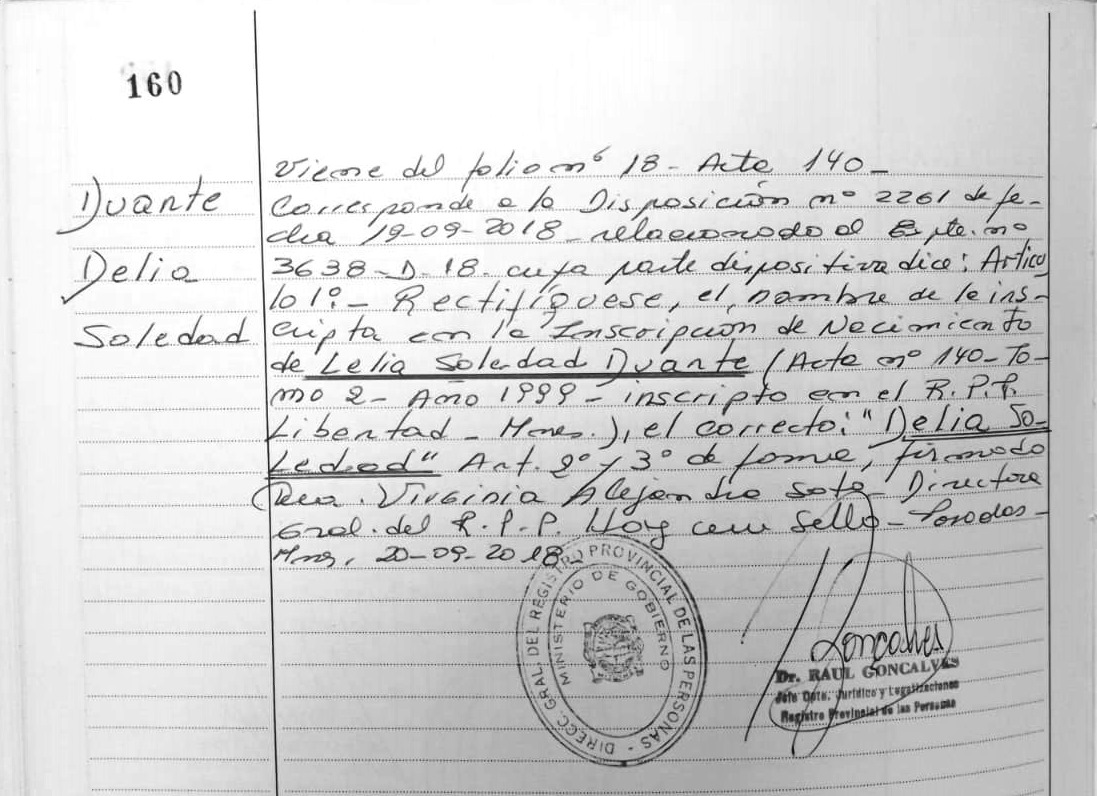 160
Duante
Delia
Soledad
Viene del folio nº 18 - Acta 140 -
Corresponde a la Disposición nº 2261 de fe-
cha 19-09-2018 - relacionado al Expte. nº
3638-D-18. cuya parte dispositiva dice: Artícu
lo 1º - Rectifíquese, el nombre de la ins-
cripta en la Inscripción de Nacimiento
de Lelia Soledad Duante (Acta nº 140 - To-
mo 2 - Año 1999 - inscripto en el R.P.P.
Libertad - Mnes.), el correcto: "Delia So-
ledad" Art. 2º y 3º de forma, firmado
Dra. Virginia Alejandra Soto Directora
Gral. del R.P.P. Hay un sello - Posadas -
Mnes, 20-09-2018 -
DIRECC. GRAL. DEL REGISTRO PROVINCIAL DE LAS PERSONAS -
MINISTERIO DE GOBIERNO
Goncalves
Dr. RAUL GONCALVES
Jefe Dpto. Jurídico y Legalizaciones
Registro Provincial de las Personas